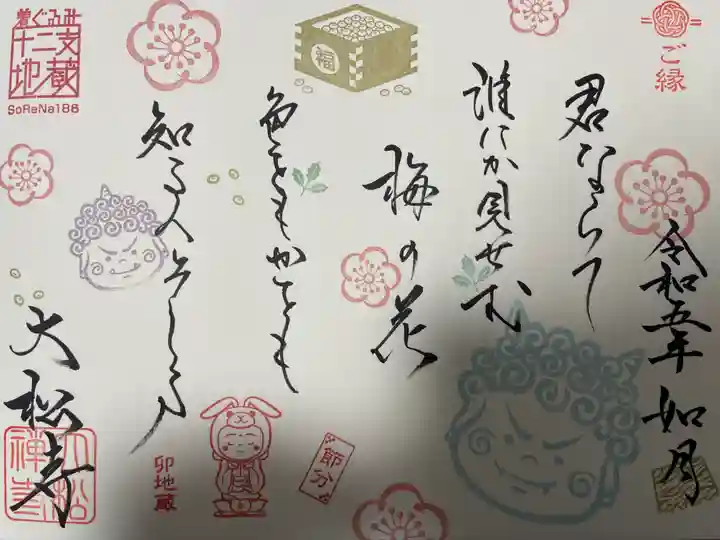 ご縁
令和五年 如月
君ならで
誰にか見せむ
梅の花
色をもかをも
知る人ぞしる
大松寺
福
着ぐるみ
十二支
地蔵
SoReNa186
卯地蔵
節分
大松
禅寺